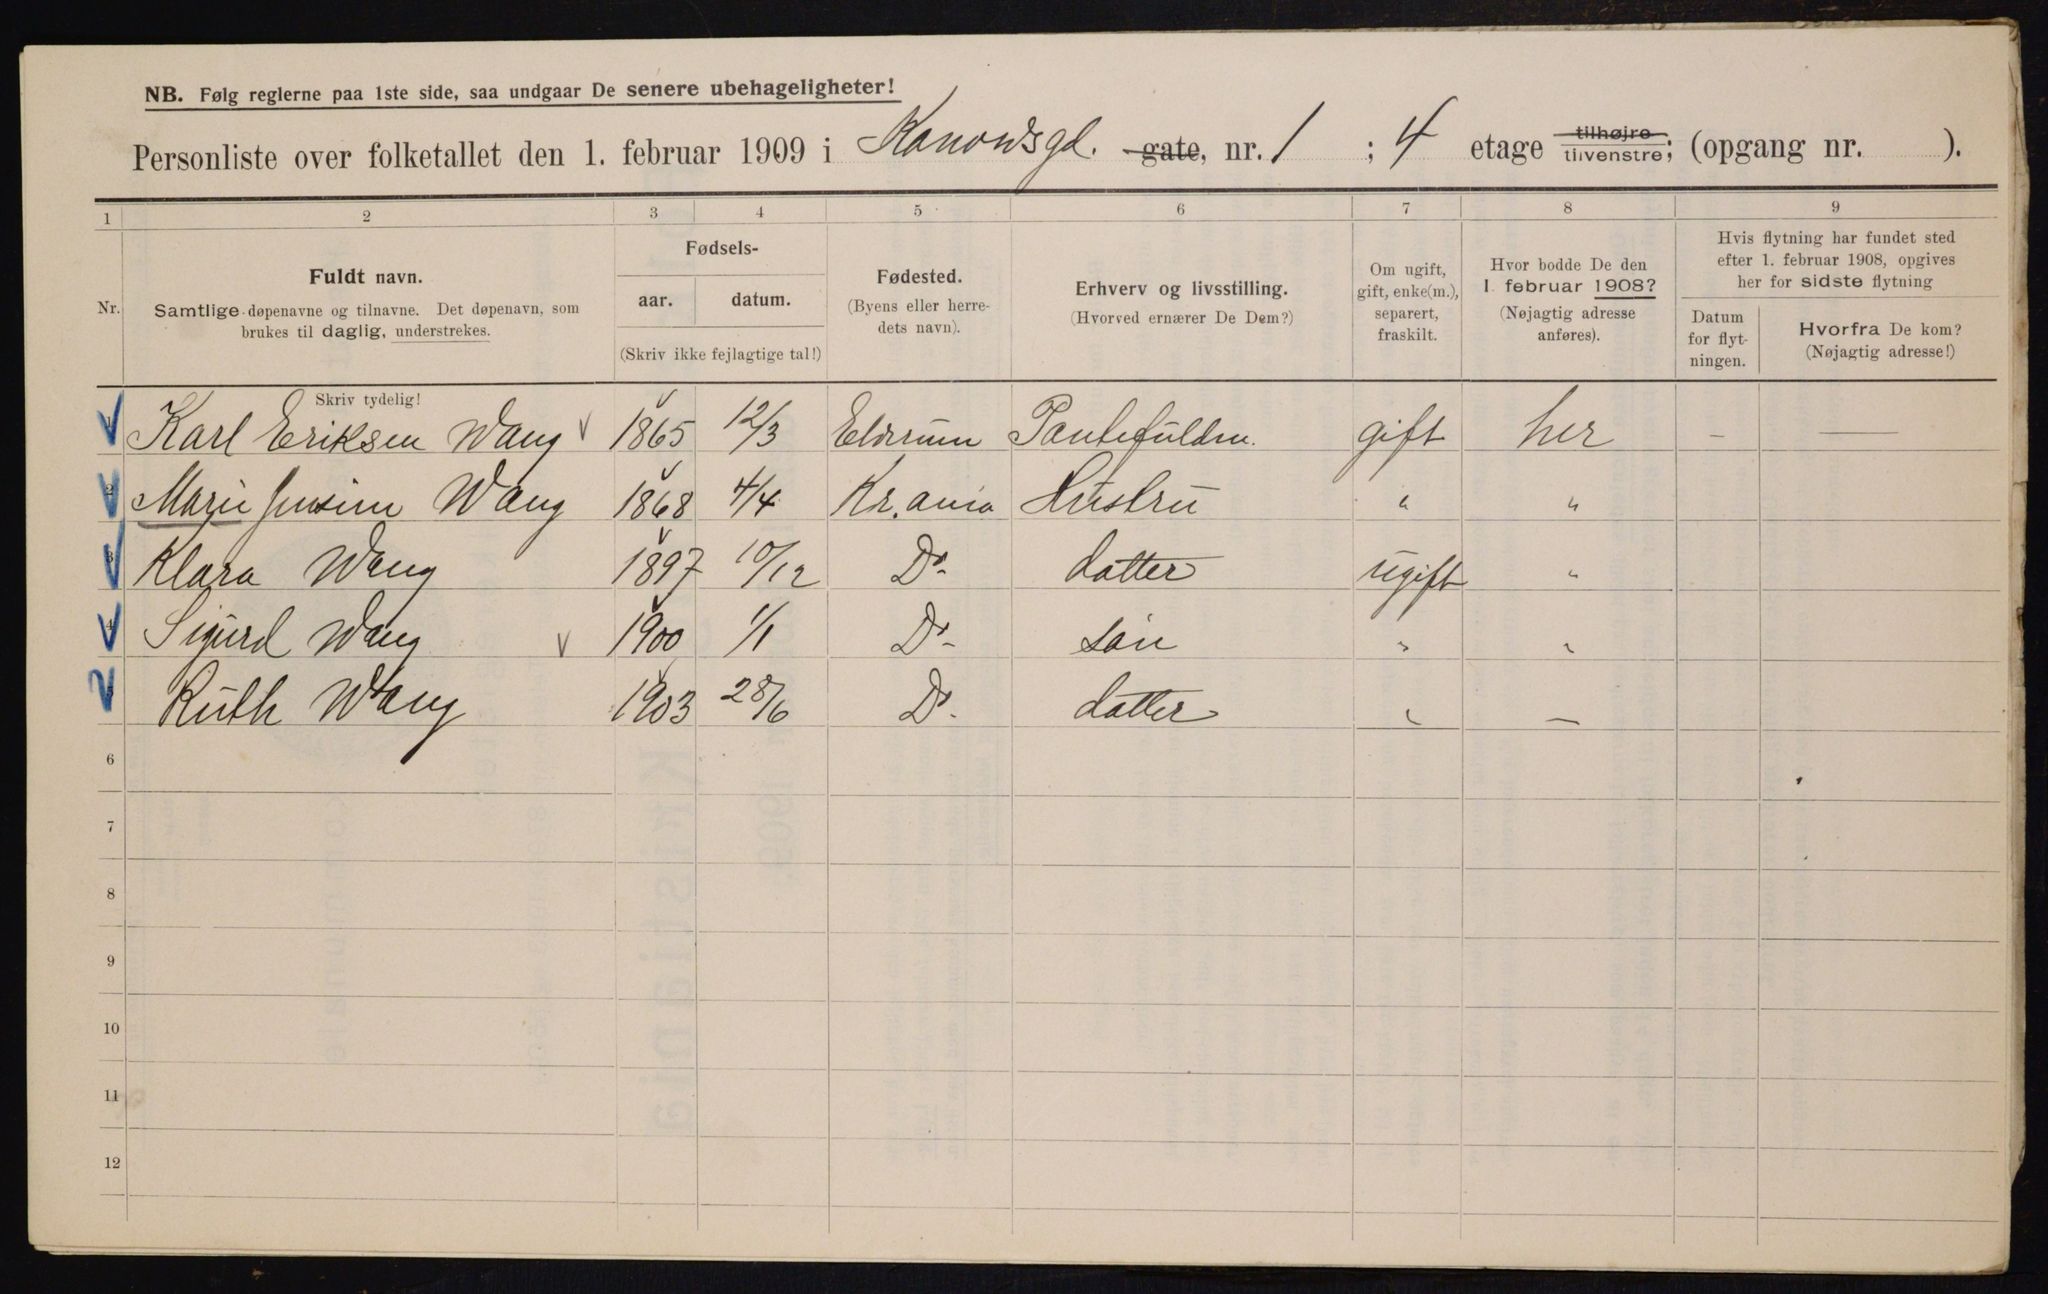 NB. Følg reglerne paa 1ste side, saa undgaar De senere ubehageligheter!
Personliste over folketallet den 1. februar 1909 i Kanowsgd. gate, nr. 1 ; 4 etage tilhøjre tilvenstre; (opgang nr. ).
1 2 3 4 5 6 7 8 9
Nr.
Fuldt navn.
Samtlige døpenavne og tilnavne. Det døpenavn, som
brukes til daglig, understrekes.
Skriv tydelig!
Fødsels-
aar. datum.
(Skriv ikke fejlagtige tal!)
Fødested.
(Byens eller herre-
dets navn).
Erhverv og livsstilling.
(Hvorved ernærer De Dem?)
Om ugift,
gift, enke(m.),
separert,
fraskilt.
Hvor bodde De den
1. februar 1908?
(Nøjagtig adresse
anføres).
Hvis flytning har fundet sted
efter 1. februar 1908, opgives
her for sidste flytning
Datum
for flyt-
ningen.
Hvorfra De kom?
(Nøjagtig adresse!)
1 Karl Eriksen Wang 1865 12/3 Elverum gift her – —
2 Marie Wang 1868 4/4 Kr.ania Hustru " "
3 Klara Wang 1897 10/12 Do- datter ugift "
4 Sigurd Wang 1900 1/1 Do- søn " "
Ruth Wang 1903 28/6 Do- datter " —
6
7
8
9
10
11
12